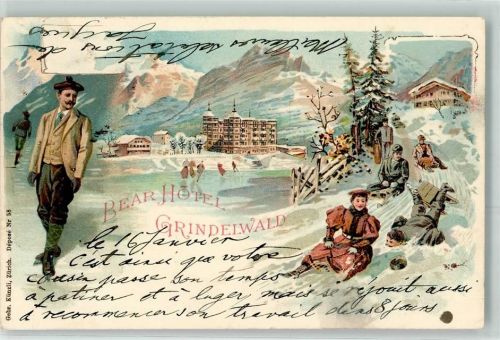 Meilleures salutations de
Jacques
BEAR HÔTEL
GRINDELWALD
le 16 Janvier
C'est ainsi que votre
cousin passe son temps
a patiner et à luger mais se réjouit aussi
à recommencer son travail dans 8 jours
Gebr. Künzli, Zürich. Déposé Nr 58